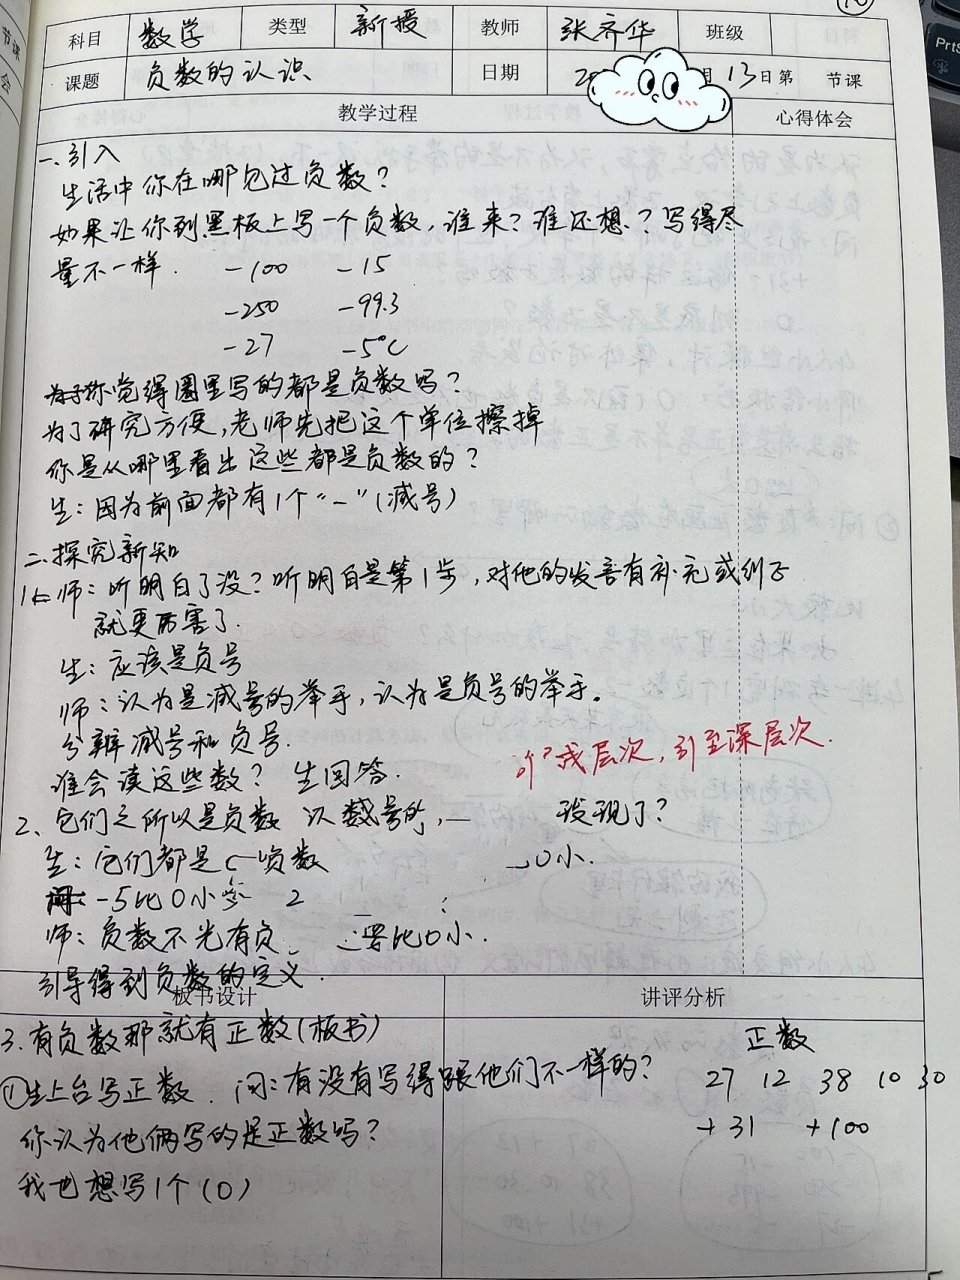 科目 数学 类型 新授 教师 张齐华 班级
课题 负数的认识 日期 20 月13日第 节课
教学过程 心得体会
一、引入
生活中你在哪见过负数？
如果让你到黑板上写一个负数，谁来？谁还想？写得尽
量不一样．
-100 -15
-250 -99.3
-27 -5℃
你觉得圈里写的都是负数吗？
为了研究方便，老师先把这个单位擦掉
你是从哪里看出这些都是负数的？
生：因为前面都有1个“－”(减号)
二、探究新知
1、师：听明白了没？听明白是第1步，对他的发言有补充或纠正
就更厉害了．
生：应该是负号
师：认为是减号的举手，认为是负号的举手。
分辨减号和负号．
谁会读这些数？ 生回答．
层次，引至深层次．
2、它们之所以是负数 发现了？
生：它们都是 负数 0小．
问：-5比0小
师：负数不光有负 要比0小．
引导得到负数的定义
板书设计 讲评分析
3.有负数那就有正数(板书)
①生上台写正数．问：有没有写得跟他们不一样的？
你认为他俩写的是正数吗？
我也想写1个(0)
正数
27 12 38 10 30
+31 +100